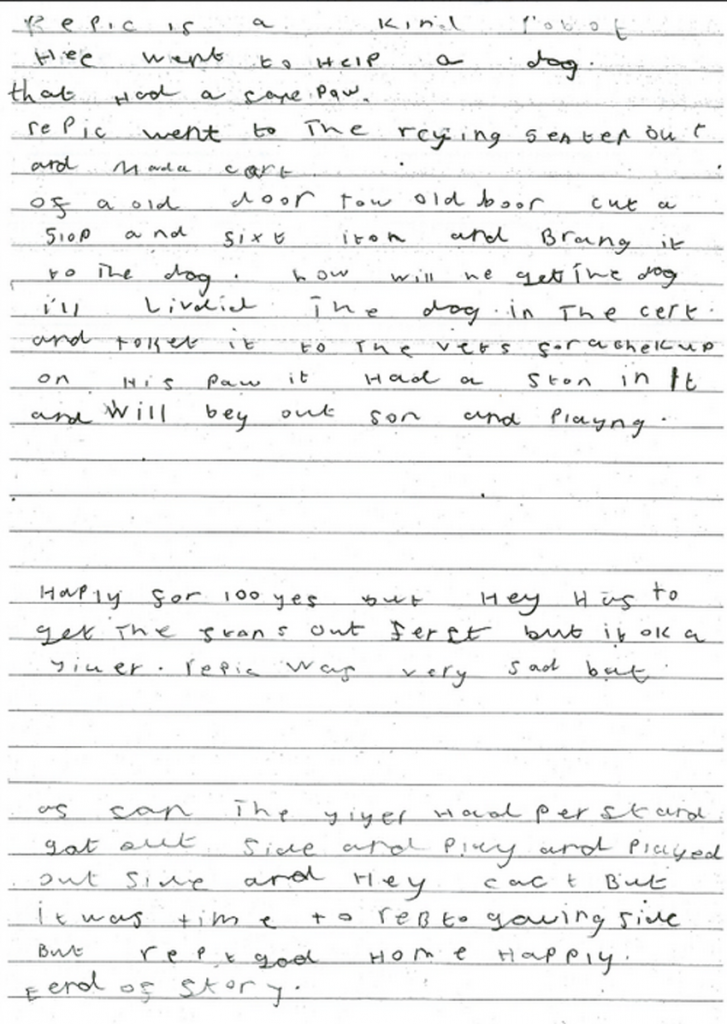 Repic is a kind robot
Hee went to Help a dog.
that Had a sore paw.
rePic went to The rcying senter out
and Mada cart
of a old door tow old boor cut a
Slop and sixt iton and Brang it
to The dog. how will he get The dog
i'll Livdid The dog in The cert
and toket it to The vets for a chekup
on His paw it Had a Ston in It
and Will bey out son and Playng.
Haply for 100 yes but Hey Has to
get The stons out ferst but it ok a
yiuer. repic Was very sad but
as son The yiyer Had perst and
got out Side and Play and Played
out Side and Hey cact But
it was time to reB to gowing side
But repi god Home Happly.
Eend of Story.